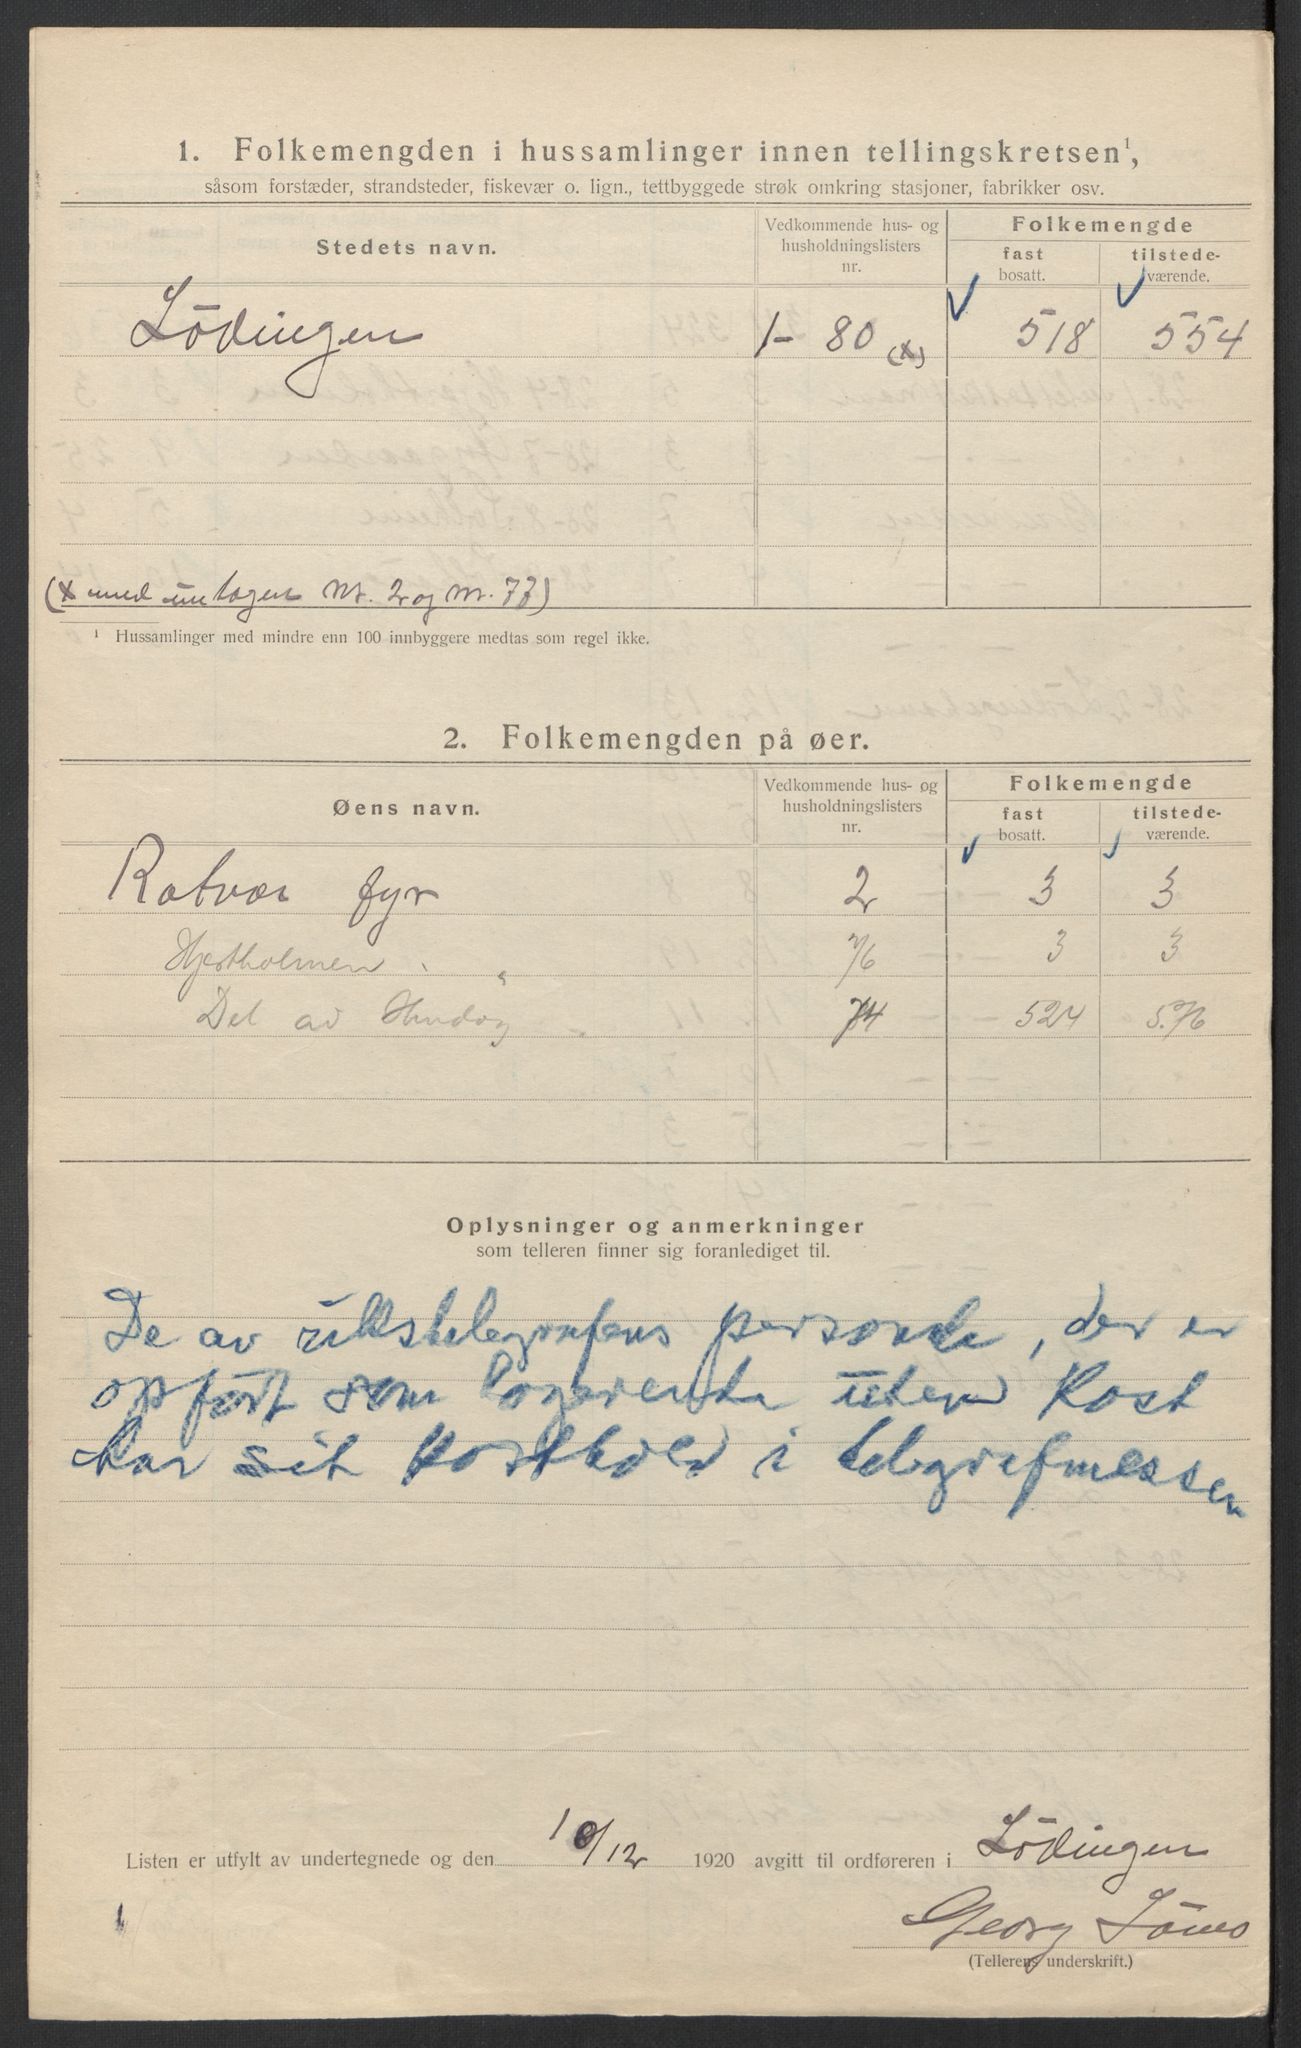 1. Folkemengden i hussamlinger innen tellingskretsen¹,
såsom forstæder, strandsteder, fiskevær o. lign., tettbyggede strøk omkring stasjoner, fabrikker osv.
Stedets navn.
Vedkommende hus- og husholdningslisters nr.
Folkemengde
fast bosatt.
tilstede-værende.
Lödingen 1- 80 (x) 518 554
(x med untagen Nr. 2 og Nr. 77)
¹ Hussamlinger med mindre enn 100 innbyggere medtas som regel ikke.
2. Folkemengden på øer.
Øens navn.
Vedkommende hus- og husholdningslisters nr.
Folkemengde
fast bosatt.
tilstede-værende.
Rotvær fyr 2 3 3
Hjertholmen " 76 3 3
Del av Hindøy 74 524 576
Oplysninger og anmerkninger
som telleren finner sig foranlediget til.
De av rikstelegrafens personale, der er
opført som logerende uten Kost
har sit Kosthold i telegrafmessen
Listen er utfylt av undertegnede og den 10/12 1920 avgitt til ordføreren i Lödingen
Georg
(Tellerens underskrift.)